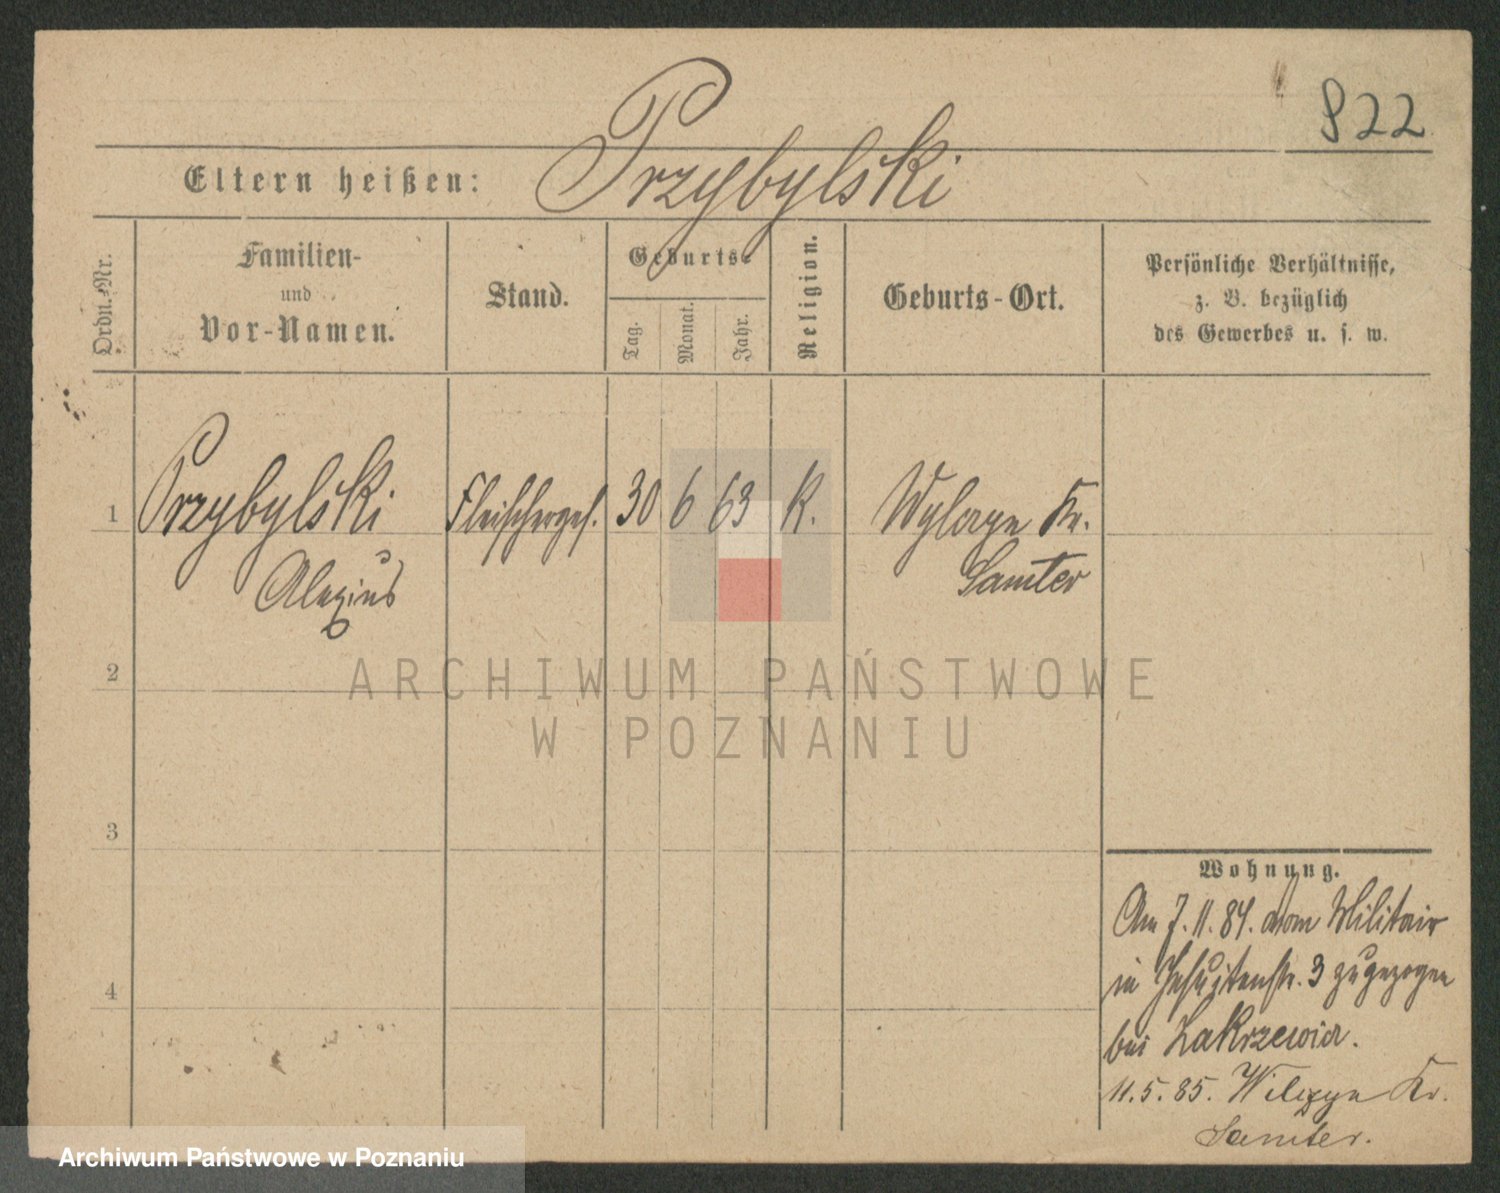 822
Eltern heißen: Przybylski
Ordn.-Nr.
Familien-
und
Vor-Namen.
Stand.
Geburts-
Tag.
Monat.
Jahr.
Religion.
Geburts-Ort.
Persönliche Verhältnisse,
z. B. bezüglich
des Gewerbes u. s. w.
1 Przybylski Fleischerges. 30 6 63 K. Kr.
Alexius Samter
ARCHIWUM PAŃSTWOWE
W POZNANIU
2
3
4
Wohnung.
Am 7. 11. 84. vom Militair
in Jesuitenstr. 3 zugezogen
bei Zakrzewicz.
11. 5. 85. Kr.
Samter.
Archiwum Państwowe w Poznaniu